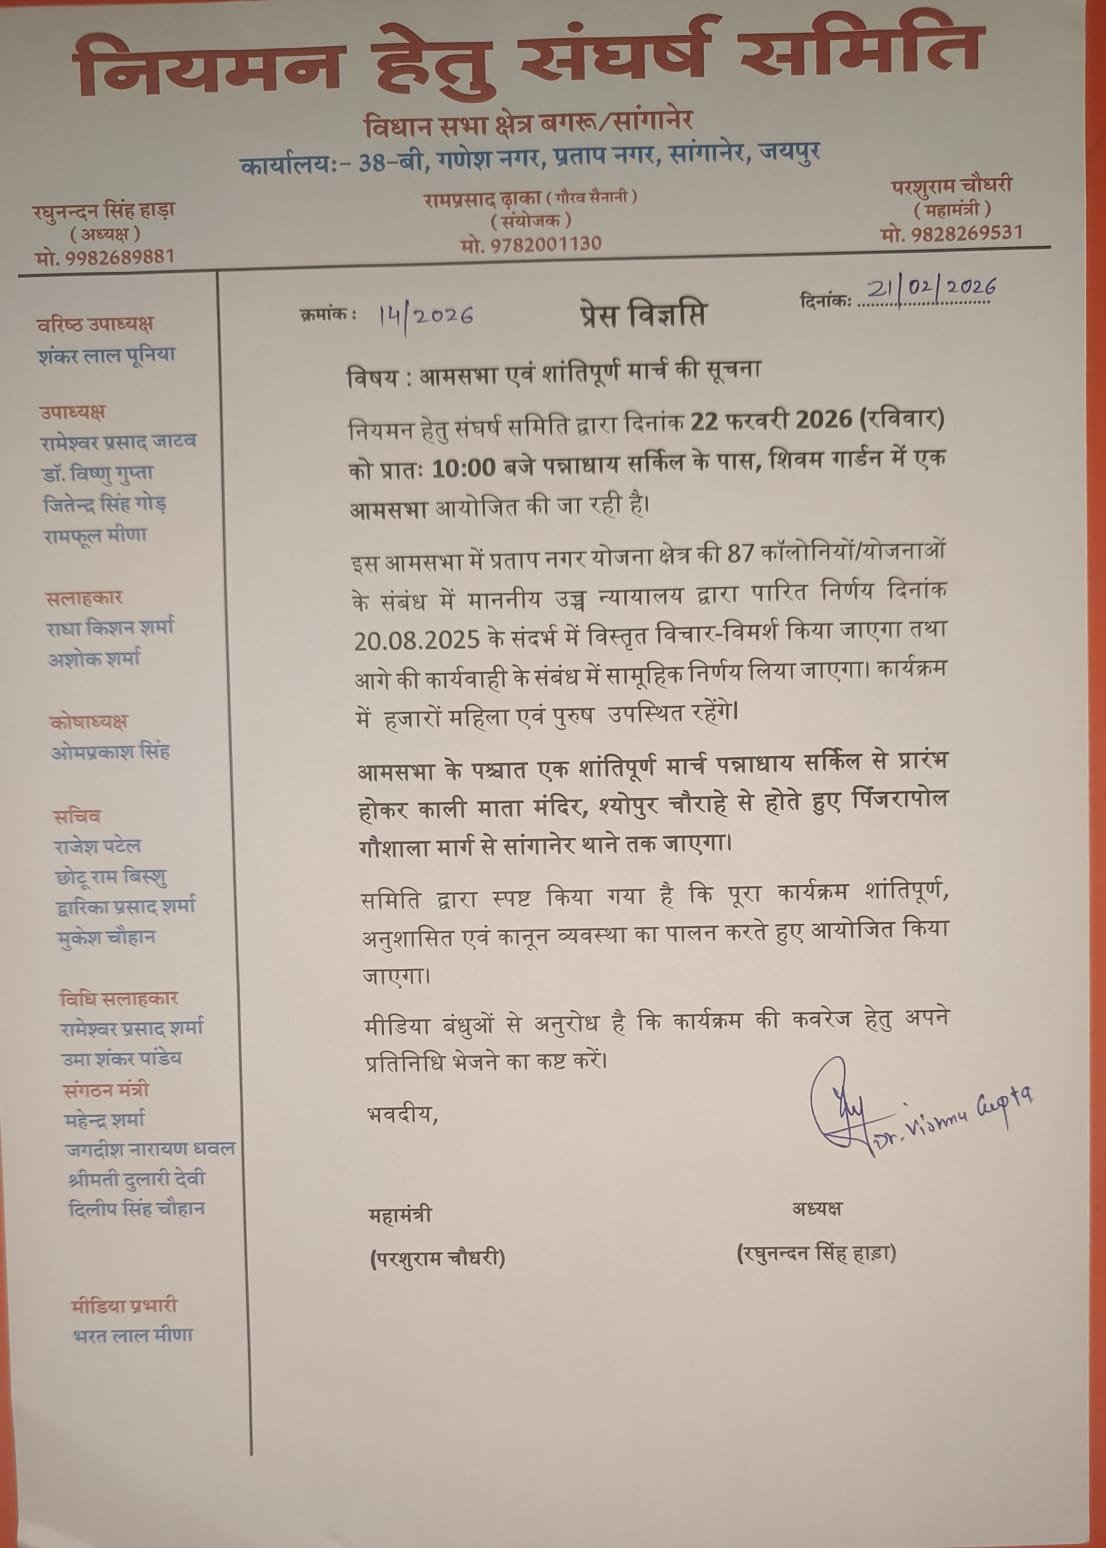 नियमन हेतु संघर्ष समिति
विधान सभा क्षेत्र बगरू/सांगानेर
कार्यालयः- 38-बी, गणेश नगर, प्रताप नगर, सांगानेर, जयपुर
रघुनन्दन सिंह हाड़ा
( अध्यक्ष )
मो. 9982689881
रामप्रसाद ढ़ाका ( गौरव सैनानी )
( संयोजक )
मो. 9782001130
परशुराम चौधरी
( महामंत्री )
मो. 9828269531
वरिष्ठ उपाध्यक्ष
शंकर लाल पूनिया
उपाध्यक्ष
रामेश्वर प्रसाद जाटव
डॉ. विष्णु गुप्ता
जितेन्द्र सिंह गोड़
रामफूल मीणा
सलाहकार
राधा किशन शर्मा
अशोक शर्मा
कोषाध्यक्ष
ओमप्रकाश सिंह
सचिव
राजेश पटेल
छोटू राम बिस्शु
द्वारिका प्रसाद शर्मा
मुकेश चौहान
विधि सलाहकार
रामेश्वर प्रसाद शर्मा
उमा शंकर पांडेय
संगठन मंत्री
महेन्द्र शर्मा
जगदीश नारायण धवल
श्रीमती दुलारी देवी
दिलीप सिंह चौहान
मीडिया प्रभारी
भरत लाल मीणा
क्रमांक : 14/2026
प्रेस विज्ञप्ति
दिनांकः 21/02/2026
विषय : आमसभा एवं शांतिपूर्ण मार्च की सूचना
नियमन हेतु संघर्ष समिति द्वारा दिनांक 22 फरवरी 2026 (रविवार)
को प्रातः 10:00 बजे पन्नाधाय सर्किल के पास, शिवम गार्डन में एक
आमसभा आयोजित की जा रही है।
इस आमसभा में प्रताप नगर योजना क्षेत्र की 87 कॉलोनियों/योजनाओं
के संबंध में माननीय उच्च न्यायालय द्वारा पारित निर्णय दिनांक
20.08.2025 के संदर्भ में विस्तृत विचार-विमर्श किया जाएगा तथा
आगे की कार्यवाही के संबंध में सामूहिक निर्णय लिया जाएगा। कार्यक्रम
में हजारों महिला एवं पुरुष उपस्थित रहेंगे।
आमसभा के पश्चात एक शांतिपूर्ण मार्च पन्नाधाय सर्किल से प्रारंभ
होकर काली माता मंदिर, श्योपुर चौराहे से होते हुए पिंजरापोल
गौशाला मार्ग से सांगानेर थाने तक जाएगा।
समिति द्वारा स्पष्ट किया गया है कि पूरा कार्यक्रम शांतिपूर्ण,
अनुशासित एवं कानून व्यवस्था का पालन करते हुए आयोजित किया
जाएगा।
मीडिया बंधुओं से अनुरोध है कि कार्यक्रम की कवरेज हेतु अपने
प्रतिनिधि भेजने का कष्ट करें।
भवदीय,
Dr. Vishnu Gupta
महामंत्री
(परशुराम चौधरी)
अध्यक्ष
(रघुनन्दन सिंह हाड़ा)